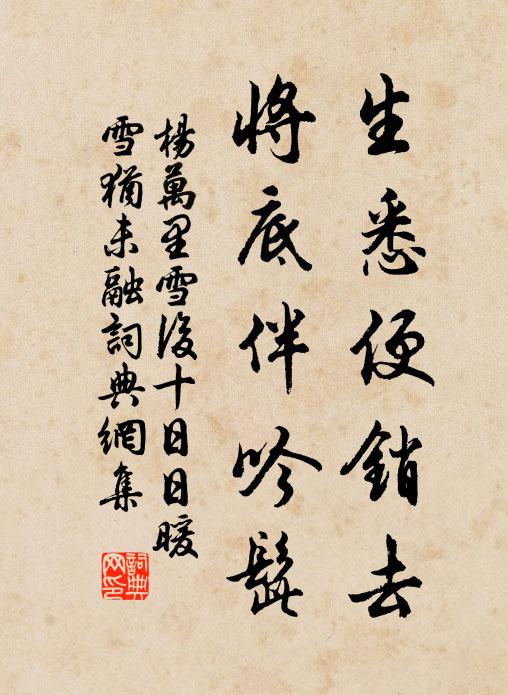 生悉便銷去
將底伴吟髭
楊萬里雪後十日日暖
雪猶未融詞典網集
詞典網印